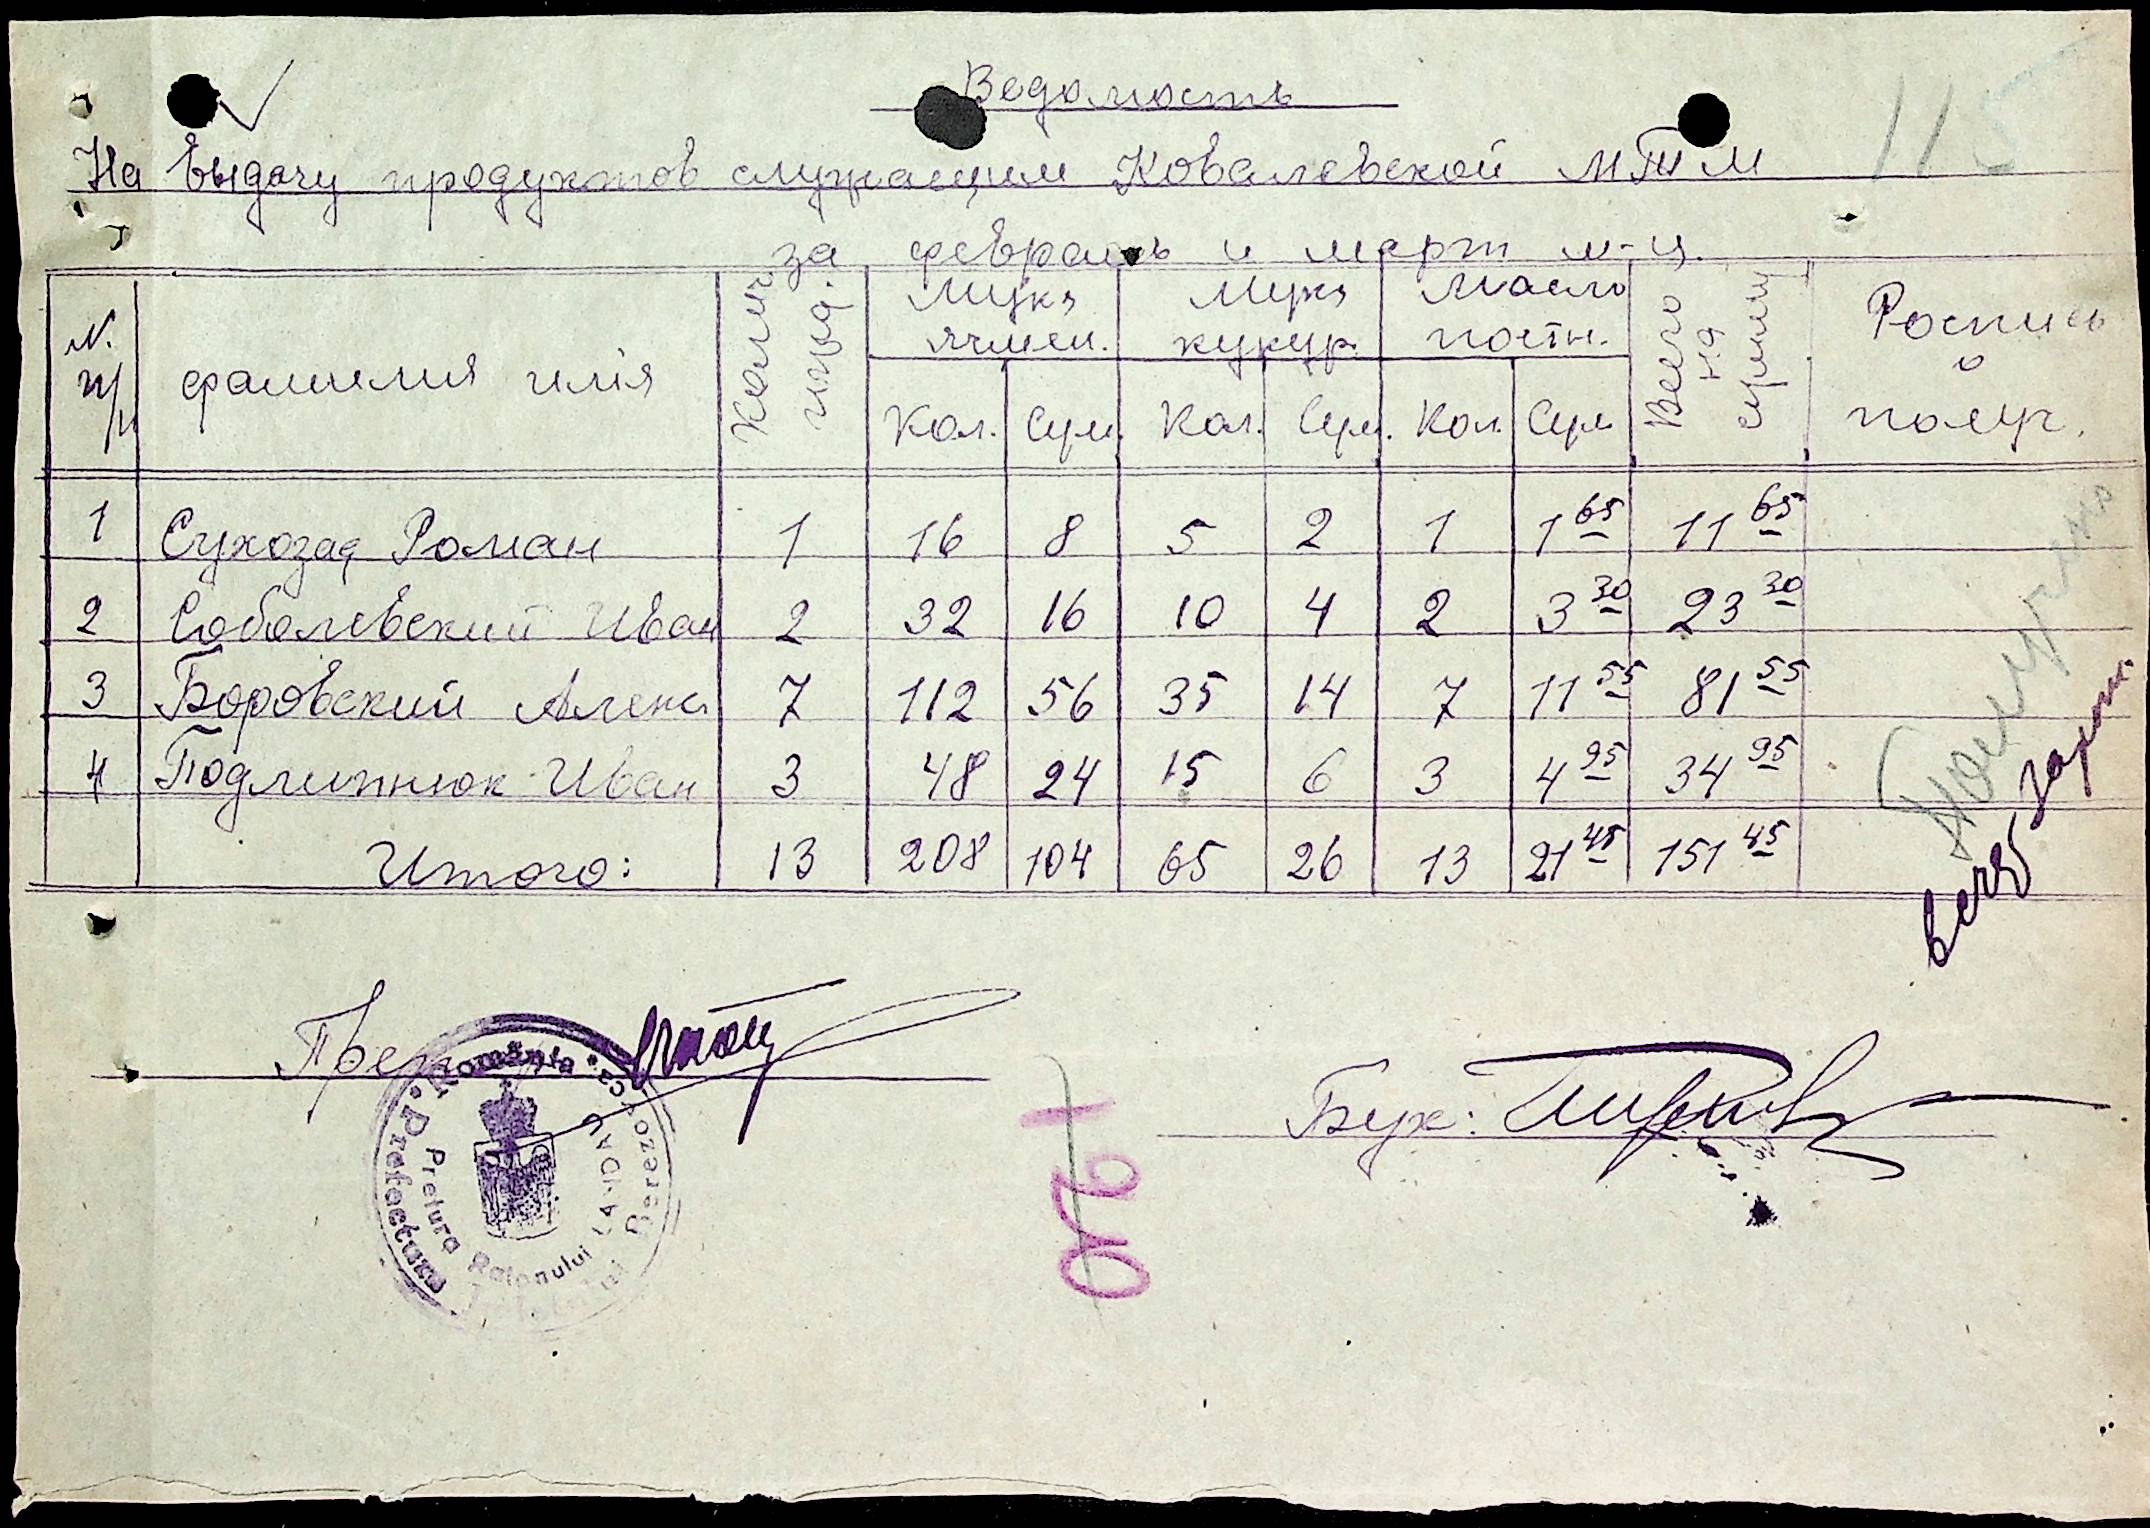 Ведомость
На выдачу продуктов служащим Ковалевской МТМ
за февраль и март м-ц.
N. п/п фамилия имія Колич. индв. Мука ячмен. Мука кукур. Масло постн. Всего на сумму Роспись о получ.
Кол. Сум. Кол. Сум. Кол. Сум
1 Сухозад Роман 1 16 8 5 2 1 1 65 11 65
2 Соболевский Иван 2 32 16 10 4 2 3 30 23 30
3 Боровский Алекс. 7 112 56 35 14 7 11 55 81 55
4 Подлипнюк Иван 3 48 24 15 6 3 4 95 34 95
Итого: 13 208 104 65 26 13 21 45 151 45
România
Prefectura Berezovca
Pretura Raionului
Бух: